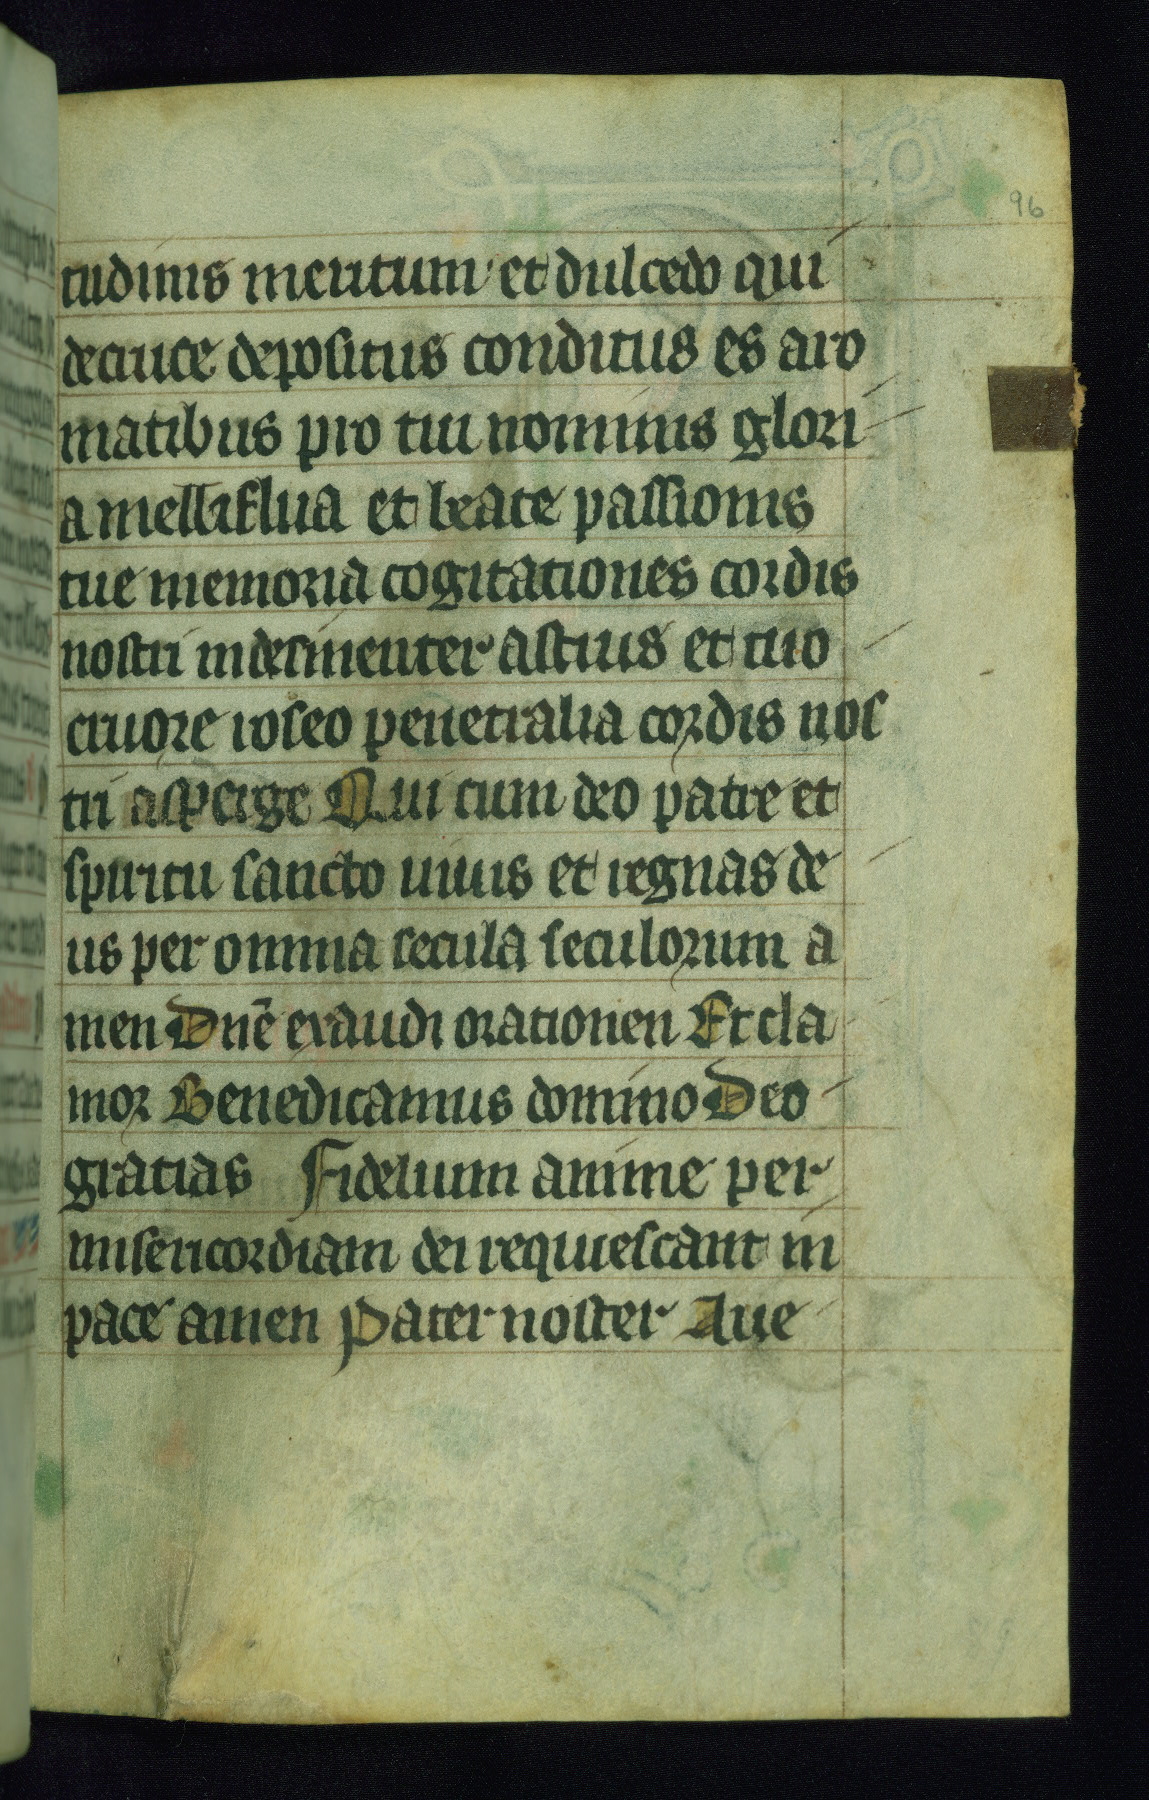 96
tudinis meritum et dulcedo qui
de cruce depositus conditus es aro
matibus pro tui nominis glori
a melliflua et beate passionis
tue memoria cogitationes cordis
nostri indesinenter astrius et tuo
cruore roseo penetralia cordis nos
tri asperge Qui cum deo patre et
spiritu sancto uiuis et regnas de
us per omnia secula seculorum a
men Dnē exaudi orationen Et cla
mor Benedicamus domino Deo
gratias Fidelium anime per
misericordiam dei requiescant in
pace amen Pater noster Aue